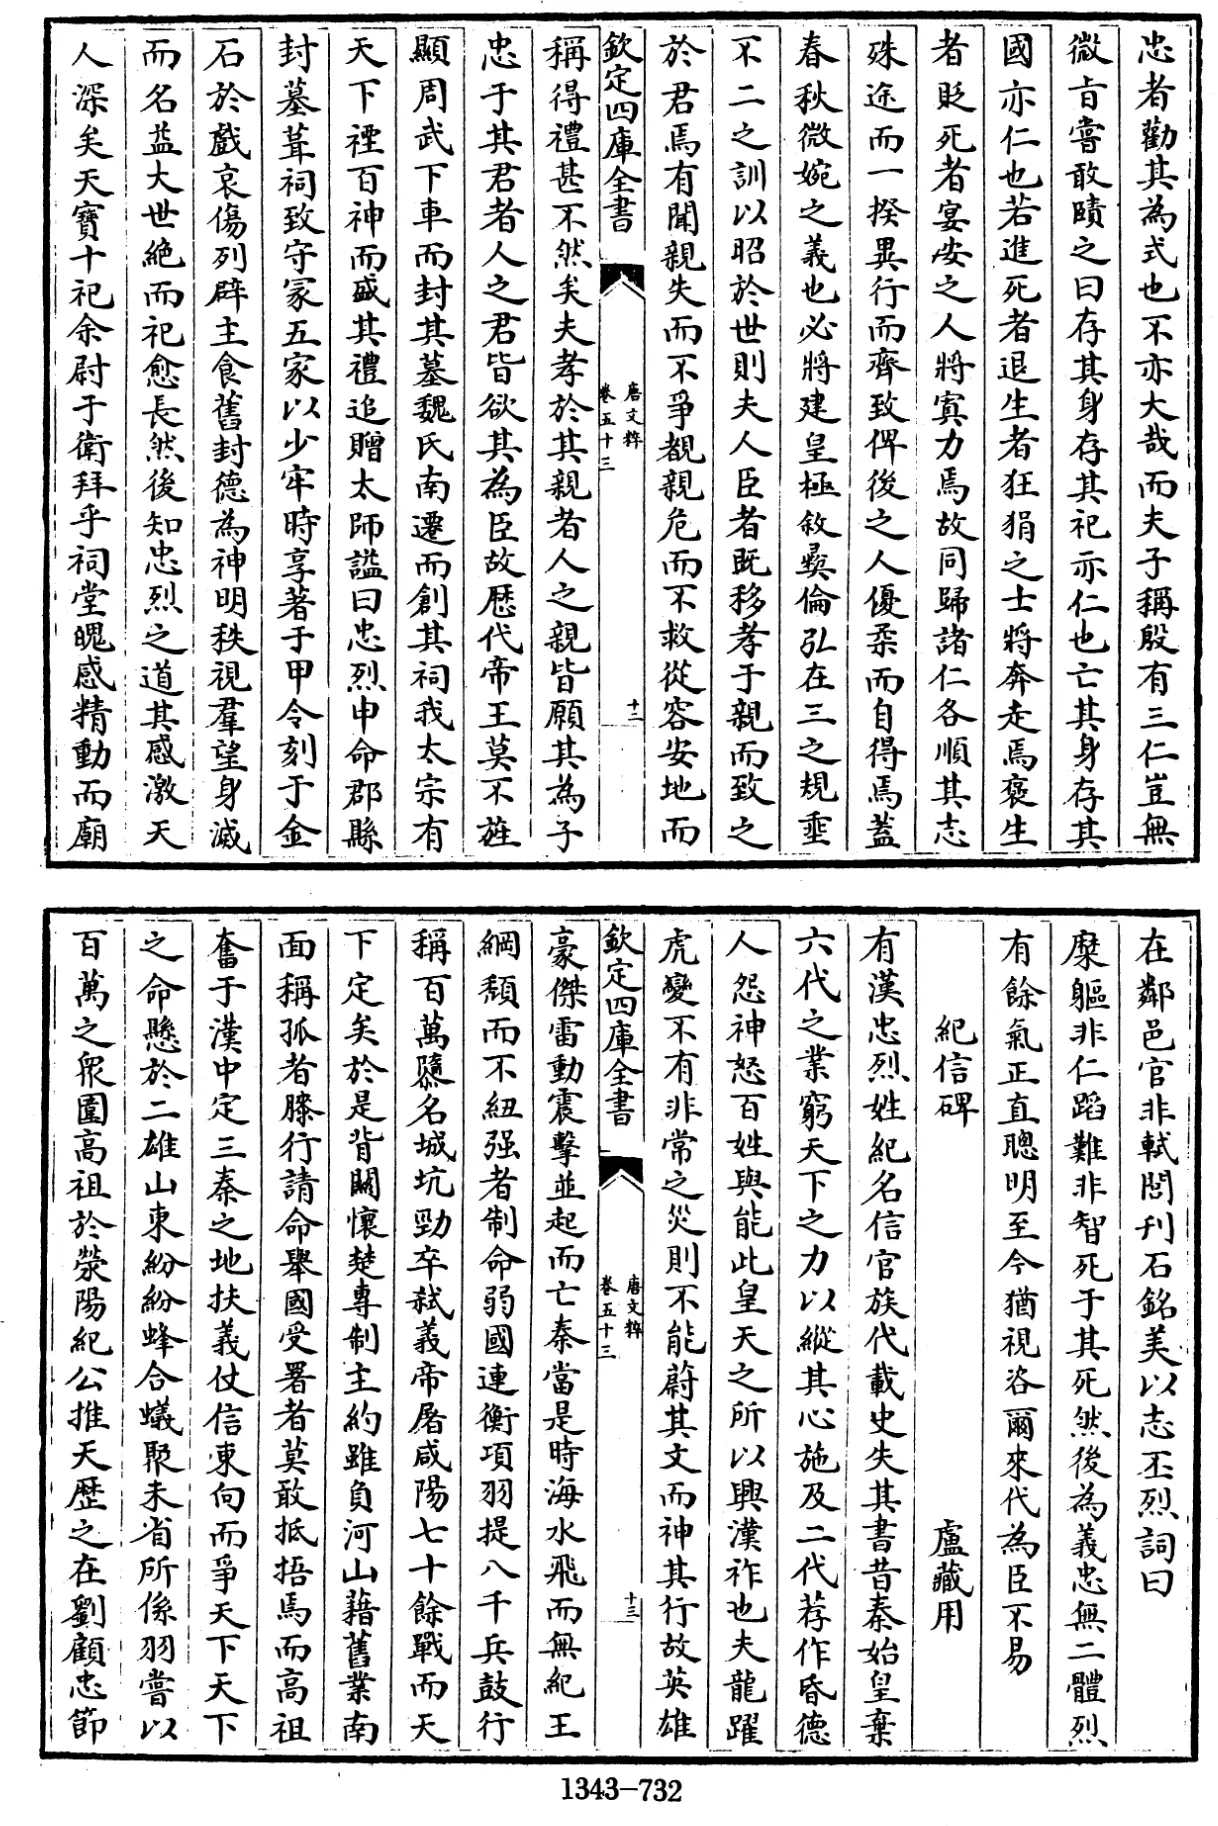 忠者勸其為式也不亦大哉而夫子稱殷有三仁豈無
微㫖嘗敢賾之曰存其身存其祀亦仁也亡其身存其
國亦仁也若進死者退生者狂狷之士將奔走焉褒生
者貶死者宴安之人將寘力焉故同歸諸仁各順其志
殊途而一揆異行而齊致俾後之人優柔而自得焉蓋
春秋微婉之義也必將建皇極敘彝倫弘在三之規垂
不二之訓以昭於世則夫人臣者既移孝于親而致之
於君焉有聞親失而不爭覩親危而不救從容安地而
欽定四庫全書
唐文粹
卷五十三
十二
稱得禮甚不然矣夫孝於其親者人之親皆願其為子
忠于其君者人之君皆欲其為臣故歴代帝王莫不旌
顯周武下車而封其墓魏氏南遷而創其祠我太宗有
天下禋百神而盛其禮追贈太師諡曰忠烈申命郡縣
封墓葺祠致守冢五家以少牢時享著于甲令刻于金
石於戲哀傷列辟主食舊封德為神明秩視羣望身滅
而名益大世絶而祀愈長然後知忠烈之道其感激天
人深矣天寶十祀余尉于衛拜乎祠堂魄感精動而廟
在鄰邑官非軾閭刊石銘美以志丕烈詞曰
糜軀非仁蹈難非智死于其死然後為義忠無二體烈
有餘氣正直聰明至今猶視咨爾來代為臣不易
紀信碑 盧藏用
有漢忠烈姓紀名信官族代載史失其書昔秦始皇棄
六代之業窮天下之力以縱其心施及二代荐作昏德
人怨神怒百姓與能此皇天之所以興漢祚也夫龍躍
虎變不有非常之災則不能蔚其文而神其行故英雄
欽定四庫全書
唐文粹
卷五十三
十三
豪傑雷動震擊並起而亡秦當是時海水飛而無紀王
綱頽而不紐强者制命弱國連衡項羽提八千兵鼓行
稱百萬隳名城坑勁卒弑義帝屠咸陽七十餘戰而天
下定矣於是背關懷楚專制主約雖負河山藉舊業南
面稱孤者膝行請命舉國受署者莫敢抵捂焉而高祖
奮于漢中定三秦之地扶義仗信東向而爭天下天下
之命懸於二雄山東紛紛蜂合蟻聚未省所係羽嘗以
百萬之衆圍高祖於滎陽紀公推天歴之在劉顧忠節
1343-732